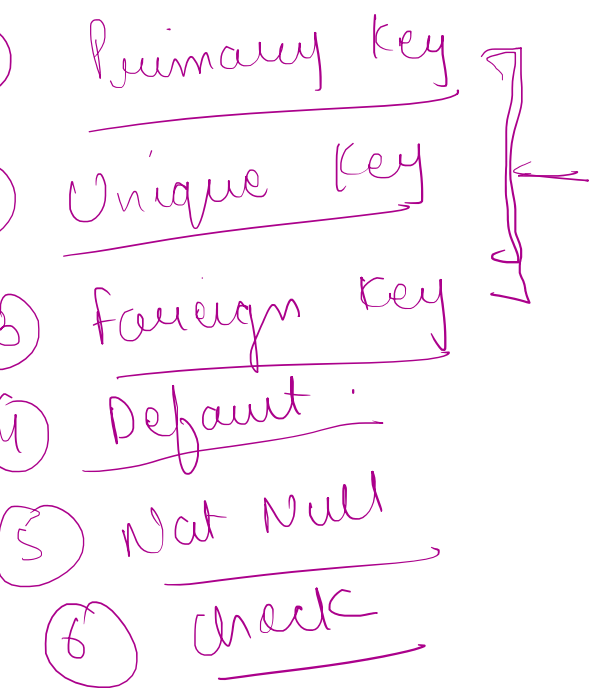 Primary Key
Unique Key
3 Foreign Key
4 Default.
5 Not Null
6 Check